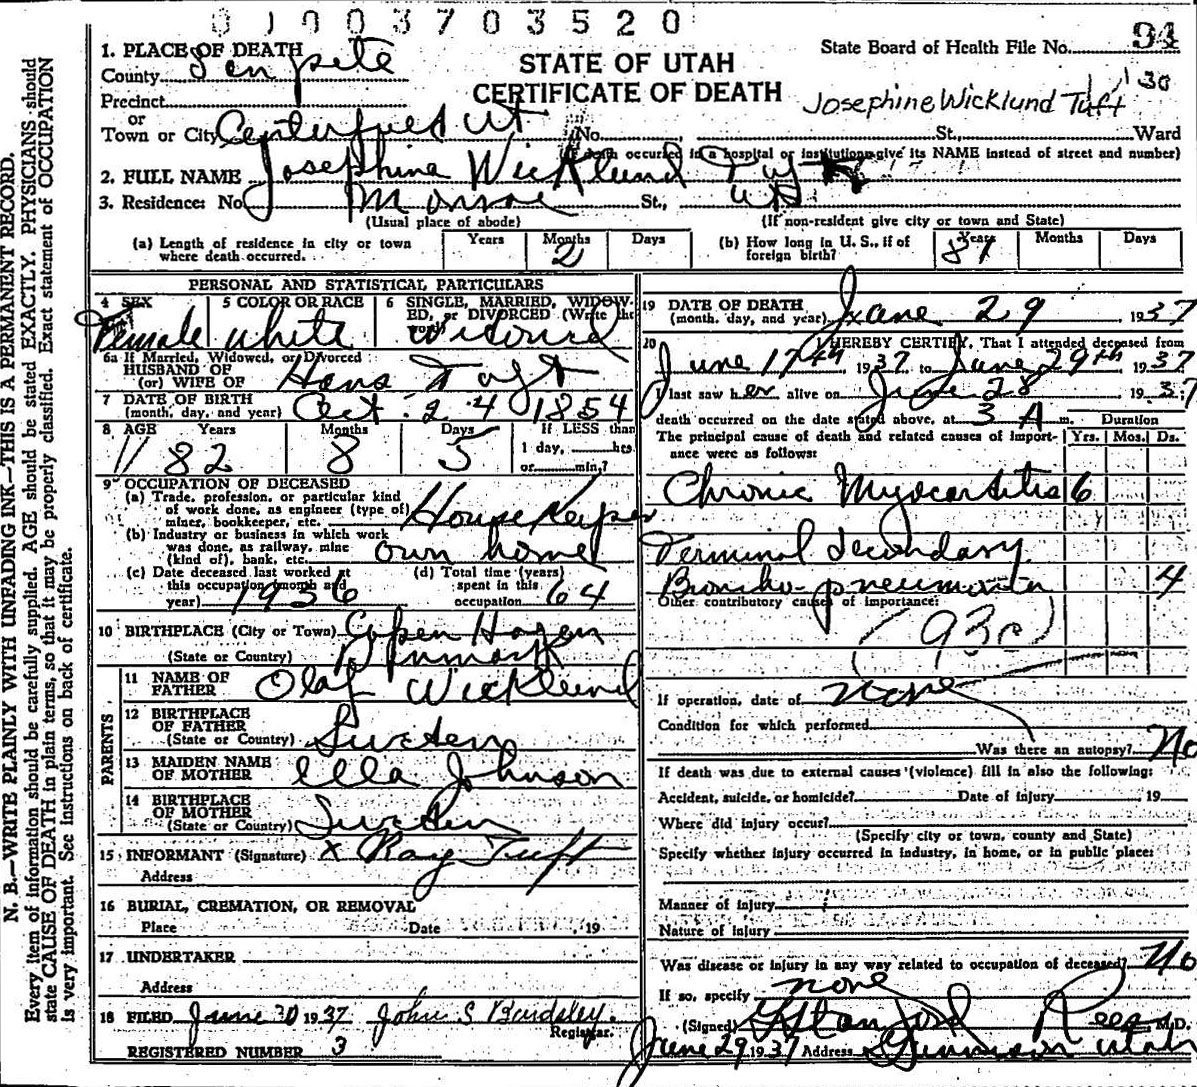 0 1 9 0 0 3 7 0 3 5 2 0
1. PLACE OF DEATH
County San pete
STATE OF UTAH
CERTIFICATE OF DEATH
State Board of Health File No. 94
Precinct
Josephine Wicklund Tuft
or
Town or City Centerfield Ut No. St., Ward
(If death occurred in a hospital or institution, give its NAME instead of street and number)
2. FULL NAME Josephine Wicklund Tuft
3. Residence: No. Monroe St., Ut
(Usual place of abode) (If non-resident give city or town and State)
(a) Length of residence in city or town where death occurred. Years Months 2 Days
(b) How long in U. S., if of foreign birth? Years 81 Months Days
PERSONAL AND STATISTICAL PARTICULARS
4 SEX Female
5 COLOR OR RACE white
6 SINGLE, MARRIED, WIDOWED, or DIVORCED (Write the word) Widowed
6a If Married, Widowed, or Divorced
HUSBAND OF
(or) WIFE OF Hans Tuft
7 DATE OF BIRTH
(month, day, and year) Oct. 24 1854
8 AGE Years 82 Months 8 Days 5 If LESS than 1 day, hrs. or min.?
9 OCCUPATION OF DECEASED
(a) Trade, profession, or particular kind of work done, as engineer (type of) miner, bookkeeper, etc. House Keeper
(b) Industry or business in which work was done, as railway, mine (kind of), bank, etc. own home
(c) Date deceased last worked at this occupation (month and year) 1936
(d) Total time (years) spent in this occupation 64
10 BIRTHPLACE (City or Town) Copen Hagen
(State or Country) Denmark
PARENTS
11 NAME OF FATHER Olaf Wicklund
12 BIRTHPLACE OF FATHER
(State or Country) Sweden
13 MAIDEN NAME OF MOTHER Ella Johnson
14 BIRTHPLACE OF MOTHER
(State or Country) Sweden
15 INFORMANT (Signature) x Ray Tuft
Address
16 BURIAL, CREMATION, OR REMOVAL
Place Date , 19
17 UNDERTAKER
Address
18 FILED June 30 1937 John S Beardsley.
Registrar.
REGISTERED NUMBER 3
19 DATE OF DEATH
(month, day, and year) June 29 1937
20 I HEREBY CERTIFY, That I attended deceased from
June 17th, 1937 to June 29th 1937
I last saw her alive on June 28 1937
death occurred on the date stated above, at 3 A m.
The principal cause of death and related causes of importance were as follows: Duration Yrs. Mos. Ds.
Chronic Myocarditis 6
Terminal Secondary
Broncho-pneumonia 4
Other contributory causes of importance:
(93c)
If operation, date of none
Condition for which performed
Was there an autopsy? No
If death was due to external causes (violence) fill in also the following:
Accident, suicide, or homicide? Date of injury , 19
Where did injury occur?
(Specify city or town, county and State)
Specify whether injury occurred in industry, in home, or in public place:
Manner of injury
Nature of injury
Was disease or injury in any way related to occupation of deceased? No
If so, specify none
(Signed) Stanford Rees M.D.
June 29 1937 Address Gunnison Utah
N. B.—WRITE PLAINLY WITH UNFADING INK—THIS IS A PERMANENT RECORD.
Every item of information should be carefully supplied. AGE should be stated EXACTLY. PHYSICIANS should
state CAUSE OF DEATH in plain terms, so that it may be properly classified. Exact statement of OCCUPATION
is very important. See instructions on back of certificate.